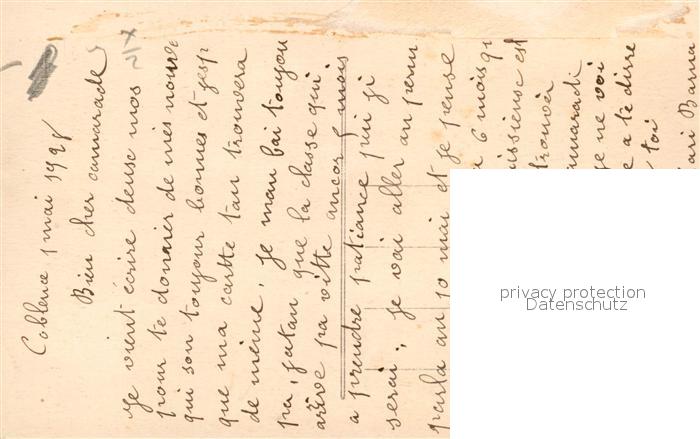 Coblence 1 mai 1928
Bien cher camarade
Je vient écrire deuse mos
pour te donner de mes nouve
qui son toujour bonnes et jesp
que ma cartte tan trouvera
de même, Je man fai toujou
pa, jatan que la classe qui
arive pa vitte ancor 5 mois
a prendre patiance pui ji
serai, je vai aller an perm
parla au 10 mai et je pense
a 6 mois qu
uissiense est
trouvèr
amaradi
ge ne voi
e a te dirre
toi
privacy protection
Datenschutz